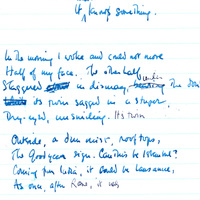 It, knows something.
In the morning I woke and could not move
Half of my face. The other half
Staggered in dismay,
its twin sagged in a stupor,
Dry-eyed, unsmiling. Its twin
Outside, a dun mist, rooftops,
The Goodyear sign. Can this be Istanbul?
Coming from India, it could be Lausanne,
As once, after Rome, it was